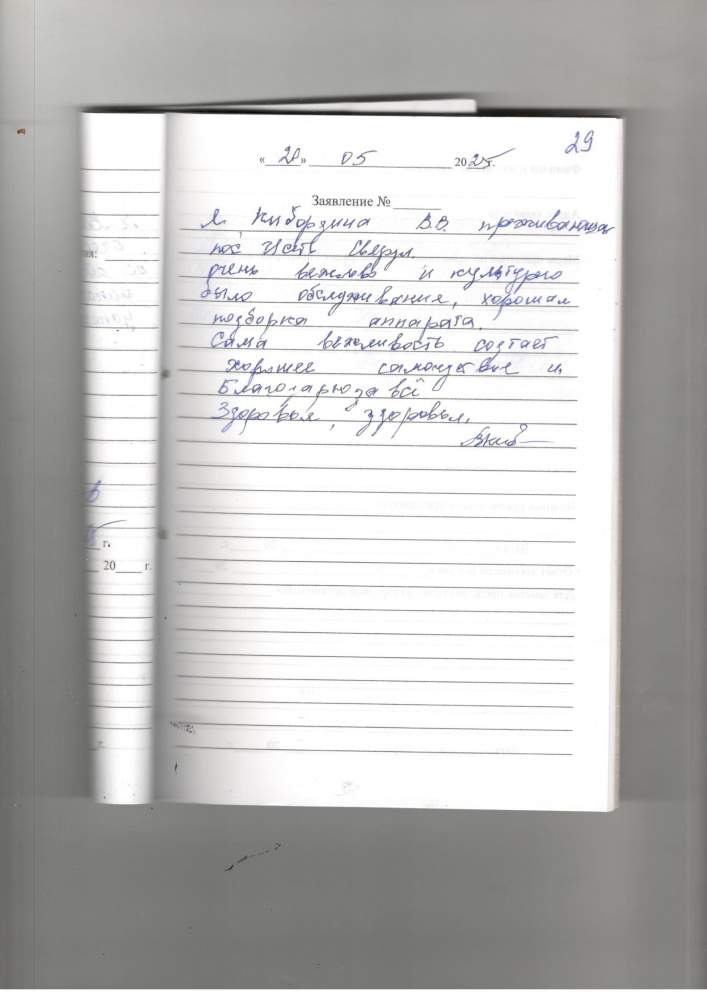 29
« 20 » 05 2025г.
Заявление №
Я, Киборзина В.В. проживающая
пос Усть
очень вежливо и культурно
было обслуживание, хорошая
подборка аппарата.
Сама вежливость создает
хорошее самочуствие и
Благодарю за всё
Здоровья, здоровья.
в
г.
20 г.